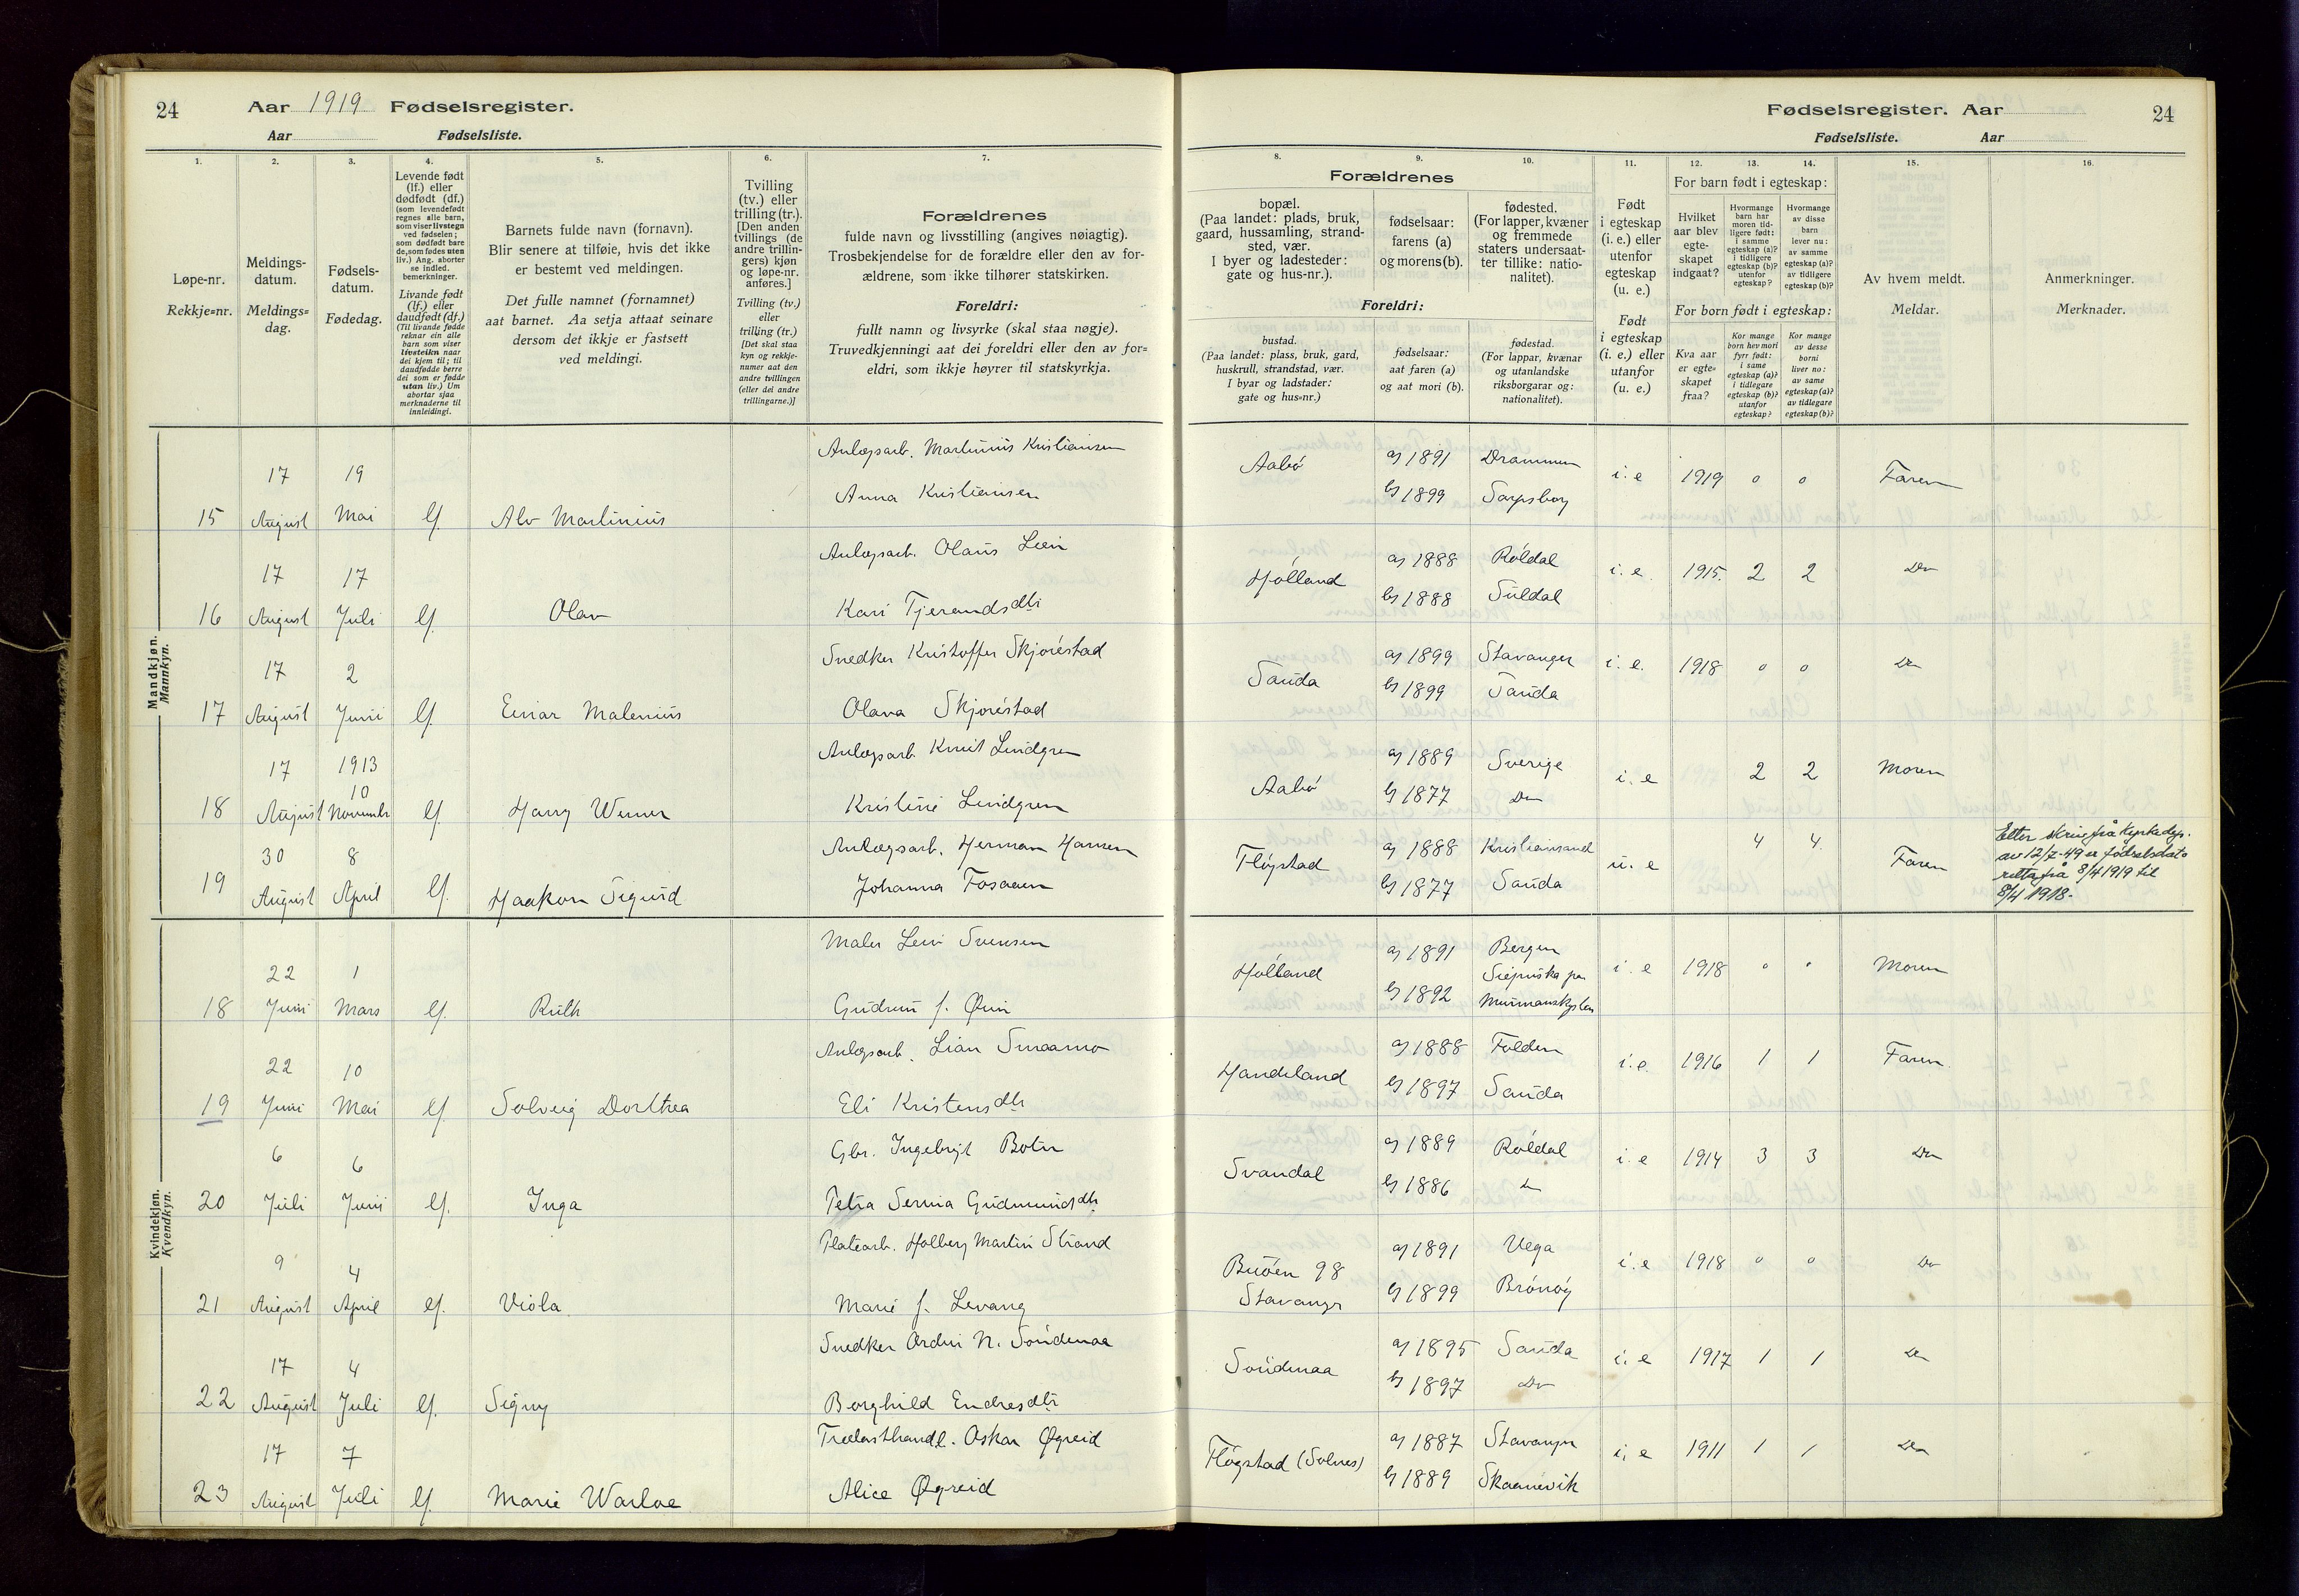 24 Aar 1919 Fødselsregister.
Aar Fødselsliste.
1. 2. 3. 4. 5. 6. 7.
Løpe-nr.
Rekkje=nr.
Meldings-
datum.
Meldings=
dag.
Fødsels-
datum.
Fødedag.
Levende født
(lf.) eller
dødfødt (df.)
(som levendefødt
regnes alle barn,
som viser livstegn
ved fødselen;
som dødfødt bare
de, som fødes uten
liv.) Ang. aborter
se indled.
bemerkninger.
Livande født
(lf.) eller
daudfødt (df.)
(Til livande fødde
reknar ein alle
barn som viser
livsteikn naar
dei kjem til; til
daudfødde berre
dei som er fødde
utan liv.) Um
abortar sjaa
merknaderne til
innleidingi.
Barnets fulde navn (fornavn).
Blir senere at tilføie, hvis det ikke
er bestemt ved meldingen.
Det fulle namnet (fornamnet)
aat barnet. Aa setja attaat seinare
dersom det ikkje er fastsett
ved meldingi.
Tvilling
(tv.) eller
trilling (tr.).
[Den anden
tvillings (de
andre trillin-
gers) kjøn
og løpe-nr.
anføres.]
Tvilling (tv.)
eller
trilling (tr.)
[Det skal staa
kyn og rekkje-
numer aat den
andre tvillingen
(eller dei andre
trillingarne.)]
Forældrenes
fulde navn og livsstilling (angives nøiagtig).
Trosbekjendelse for de forældre eller den av for-
ældrene, som ikke tilhører statskirken.
Foreldri:
fullt namn og livsyrke (skal staa nøgje).
Truvedkjenningi aat dei foreldri eller den av for=
eldri, som ikkje høyrer til statskyrkja.
Mandkjøn.
Mannkyn.
17 19 Anlegsarb. Martinius Kristiansen
Anna Kristiansen
15 August Mai lf. Alv Martinius
17 17 Anlegsarb. Olaus Lien
16 August Juli lf. Olav Kari Tjerandsdtr
17 2 Snedker Kristoffer Skjørestad
17 August Juni lf. Einar Malenius Olava Skjørestad
17 1913 Anlegsarb. Knut Lindgren
10
18 August Novembr lf. Harry Werner Kristine Lindgren
30 8 Anlegsarb. Herman Hansen
19 August April lf. Haakon Sigurd Johanna Fosaaen
Kvindekjøn.
Kvendkyn.
22 1 Maler Levi Svensen
18 Juni Mars lf. Ruth Gudrun f. Øien
22 10 Anlegsarb.
19 Juni Mai lf. Solveig Dorthea Eli Kristensdtr
6 6 Gbr. Ingebrigt Botn
20 Juli Juni lf. Inga Petra Serina Gudmundsdtr
9 4 Platearb. Holberg Martin Strand
21 August April lf. Viola Marie f. Levang
17 4 Snedker Ordin N. Søndenaa
22 August Juli lf. Signy Borghild Endresdtr
17 7 Trælasthandl. Oskar Øgreid
23 August Juli lf. Marie Warloe Alice Øgreid
Fødselsregister. Aar 24
Fødselsliste. Aar
8. 9. 10. 11. 12. 13. 14. 15. 16.
Forældrenes
bopæl.
(Paa landet: plads, bruk,
gaard, hussamling, strand-
sted, vær.
I byer og ladesteder:
gate og hus-nr.).
fødselsaar:
farens (a)
og morens (b).
fødested.
(For lapper, kvæner
og fremmede
staters undersaat-
ter tillike: natio-
nalitet).
Foreldri:
bustad.
(Paa landet: plass, bruk, gard,
huskrull, strandstad, vær.
I byar og ladstader:
gate og hus=nr.)
fødselsaar:
aat faren (a)
og aat mori (b).
fødestad.
(For lappar, kvænar
og utanlandske
riksborgarar og:
nationalitet).
Født
i egteskap
(i. e.) eller
utenfor
egteskap
(u. e.)
Født
i egteskap
(i. e.) eller
utanfor
egteskap
(u. e.)
For barn født i egteskap:
Hvilket
aar blev
egte-
skapet
indgaat?
Hvormange
barn har
moren tid-
ligere født:
i samme
egteskap (a)?
i tidligere
egteskap (b)?
utenfor
egteskap?
Hvormange
av disse
barn
lever nu:
av samme
egteskap (a)?
av tidligere
egteskap (b)?
For born født i egteskap:
Kva aar
er egte=
skapet
fraa?
Kor mange
born hev mori
fyrr født:
i same
egteskap (a)?
i tidlegare
egteskap (b)?
utanfor
egteskap?
Kor mange
av desse
borni
liver no:
av same
egteskap (a)?
av tidlegare
egteskap (b)?
Av hvem meldt.
Meldar.
Anmerkninger.
Merknader.
Aabø a) 1891 Drammen i. e 1919 0 0 Faren
b) 1899 Sarpsborg
Hølland a) 1888 Røldal i. e. 1915. 2 2 Do
b) 1888 Suldal
Sauda a) 1899 Stavanger i. e. 1918 0 0 Do
b) 1899 Sauda
Aabø a) 1889 Sverige i. e 2 2 Moren
b) 1877 Do
Fløgstad a) 1888 Kristiansand u. e 4 4. Faren
b) 1877 Sauda
Etter skriv frå Kyrkedep.
av 12/7-49 er fødselsdato
retta frå 8/4 1919 til
8/4 1918.
Hølland a) 1891 Bergen i. e 1918 0 0 Moren
b) 1892
Handeland a) 1888 Folden i. e. 1916 1 1 Faren.
b) 1897 Sauda
Svandal a) 1889 Røldal i. e 1914 3 3 Do
b) 1886 Do
Buøen 98 a) 1891 Vega i. e 1918 0 0 Do
Stavanger b) 1899 Brønøy
Søndenaa a) 1895 Sauda i. e 1917 1 1 Do
b) 1897 Do
Fløgstad (Solnes) a) 1887 Stavanger i. e 1911 1 1 Do
b) 1889 Skaanevik